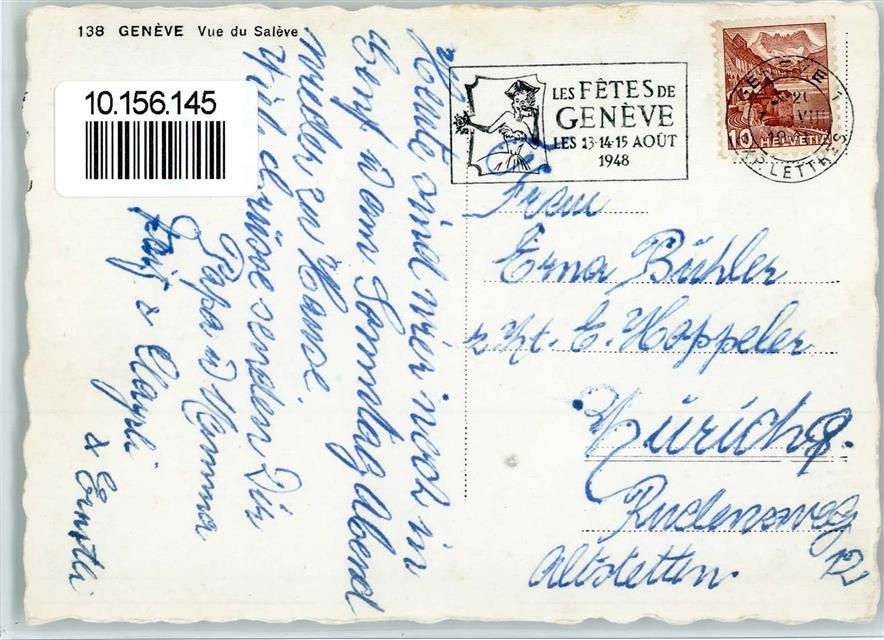 138 GENÈVE Vue du Salève
10.156.145
LES FÊTES DE
GENÈVE
LES 13-14-15 AOÛT
1948
GENÈVE 1
EXP. LETTRES
10 HELVETIA
Heute sind wir noch in
Genf u am Sonntag Abend
wieder zu Hause.
Viel Grüsse senden Dir
Papa u Mamma
& Claqli
& Ernstli
Frau
Erna Bühler
z. Zt. E. Hoppeler
Zürich 9.
Rudensweg
12
Altstetten.